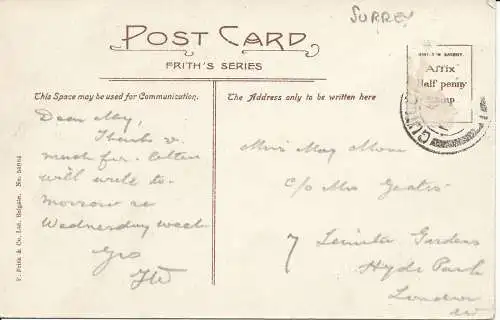 SURREY
POST CARD
FRITH'S SERIES
This Space may be used for Communication.
The Address only to be written here
Affix
Half penny
Stamp
Dear May,
Thanks v.
much for letter
will write to-
morrow re
Wednesday week
Yrs
Miss May
c/o Mrs
7 Leinster Gardens
Hyde Park
London
W
F. Frith & Co. Ltd., Reigate. No.